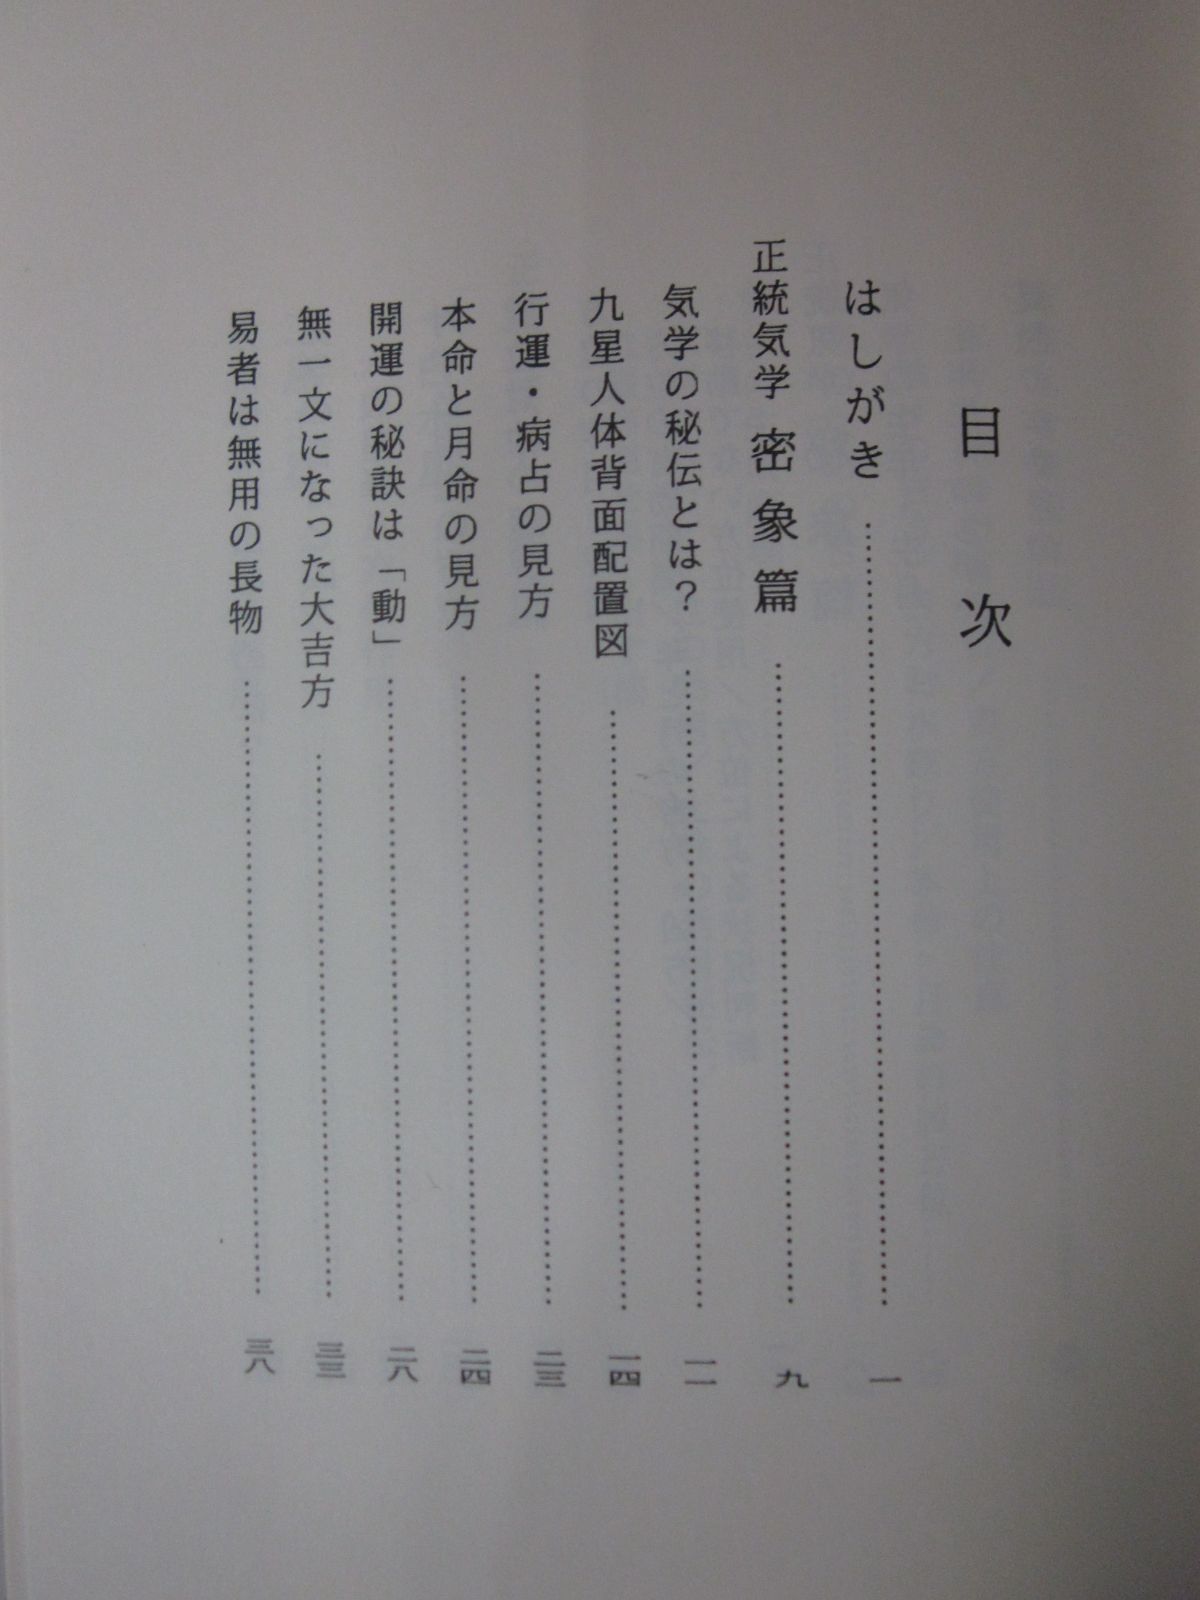 目次
はしがき……………………一
正統気学 密象篇……………………九
気学の秘伝とは？……………………一一
九星人体背面配置図……………………一四
行運・病占の見方……………………二三
本命と月命の見方……………………二四
開運の秘訣は「動」……………………二八
無一文になった大吉方……………………三三
易者は無用の長物……………………三八